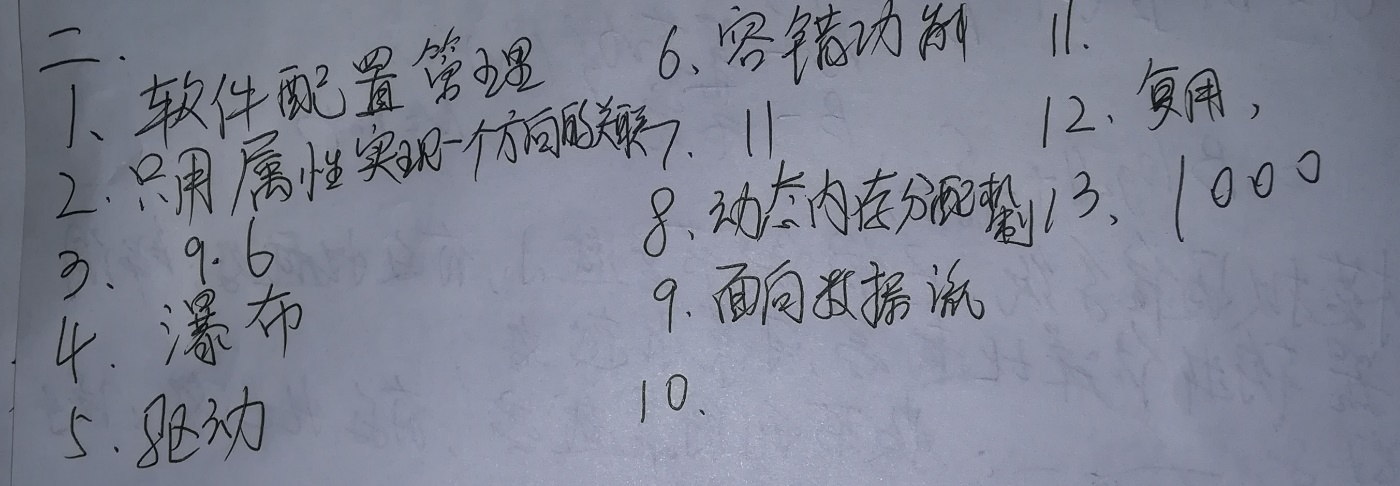 二.
1、软件配置管理
2.只用属性实现一个方向的关联
3、9.6
4.瀑布
5.驱动
6、容错功能
7.11
8、动态内存分配机制
9.面向数据流
10.
11.
12、复用,
13、1000